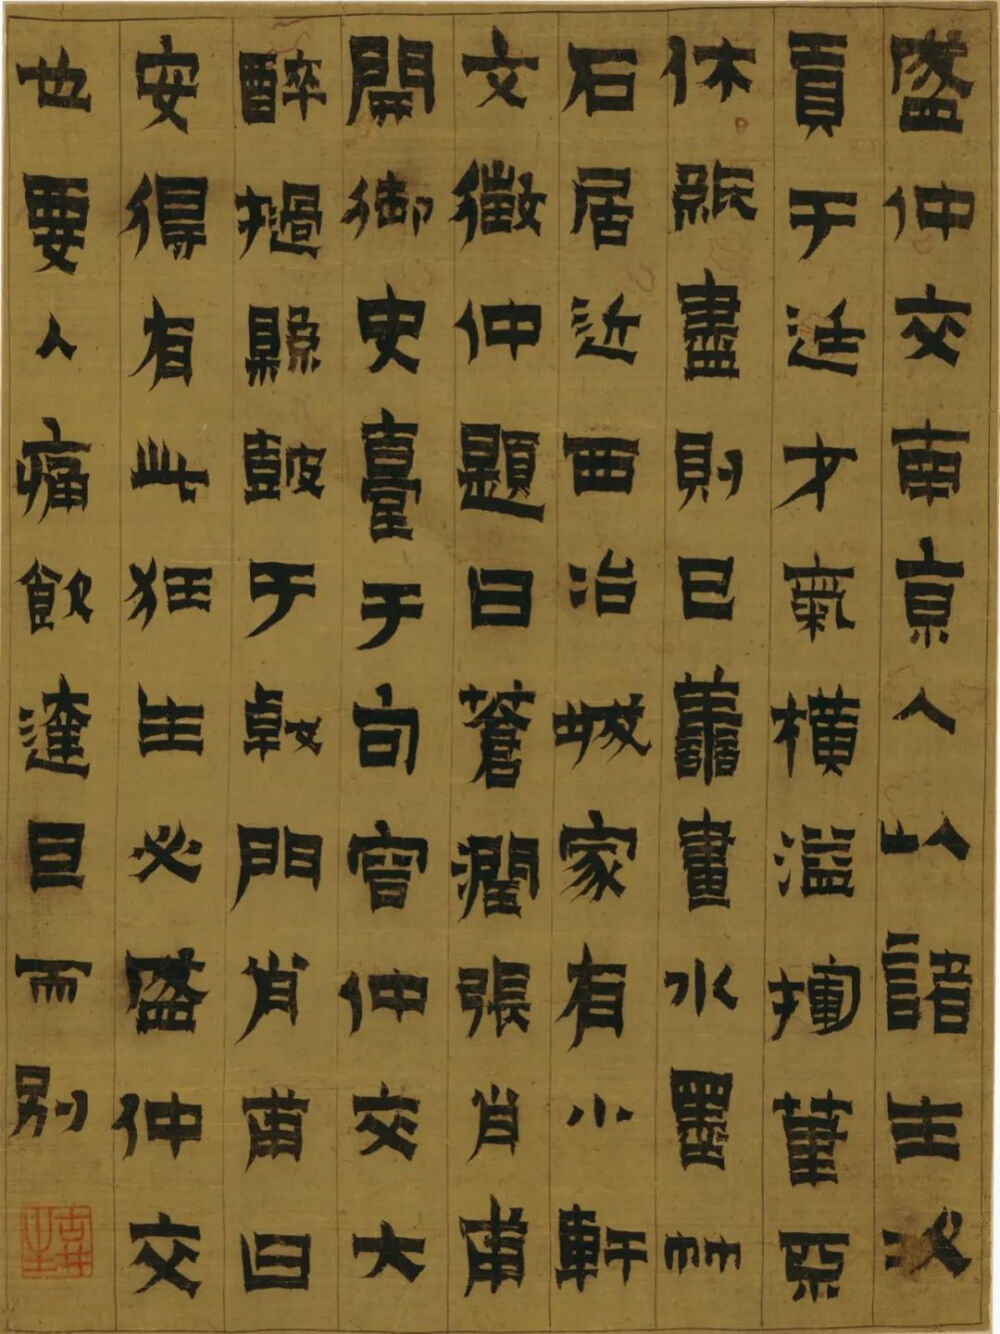 盛仲交南京人以諸生次
貢于廷才氣橫溢揮筆
休紙盡則已善畫水墨竹
石居近西冶城家有小軒
文徵仲題曰蒼潤張肖甫
開御史臺于句容仲交大
醉撾縣鼓于戟門肖甫曰
安得有此狂生必盛仲交
也要入痛飲達旦而別